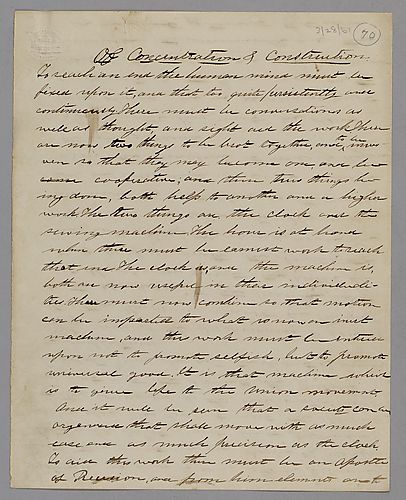 3/28/61 70
Of Concentration & Construction
To reach an end the human mind must be
fixed upon it, and that too quite persistently and
continuously. There must be conversations as
well as thought, and sight aid the work. There
are now two things to be brot together, and to be
woven so that they may become one, and be
cooperative, and these two things be
ing done, both help to another and a higher
work. The two things are, the clock and the
sewing machine. The hour is at hand
when there must be earnest work to reach
that end. The clock is, and the machine is,
both are now useful in their individuali
ties. These must now combine so, that motion
can be imparted to what is now an inert
machine, and this work must be entered
upon not to promote selfish, but to promote
universal good. It is that machine which
is to give life to the Union movement
And it will be seen that a society can be
organized that shall move with as much
ease and as much precision as the clock.
To aid this work there must be an Apostle
of Precision, and from him elements and